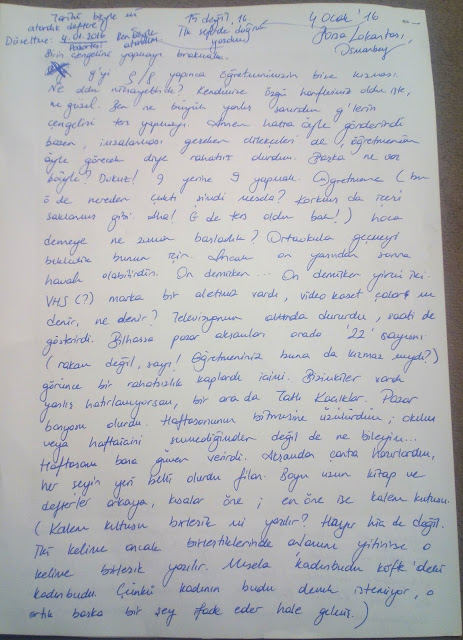 Tarihi böyle mi
atardık deftere?
Düzeltme: 4.01.2016
Pazartesi
Ben böyle
atardım.
15 değil, 16.
İlk seferde doğru
yazdım
4 Ocak '16
Hosa Lokantası,
Osmanbey
Birin çengelini yapmayı bırakmalı.
g'yi yapınca öğretmenimizin bize kızması.
Ne oldu nihayetinde? Kendimize özgü harflerimiz oldu işte,
ne güzel. Ben ne büyük yanlış sanırdım g'lerin
çengelini ters yapmayı. Annem hatta öyle gönderirdi
bazen, imzalanması gereken dilekçeleri de, öğretmenim
öyle görecek diye rahatsız olurdum. Başka ne var
böyle? Dokuz! 9 yerine 9 yapmak. Öğretmene (bu
ö de nereden çıktı şimdi mesela? Korkum da içine
saklanmış gibi. Aha! G de ters oldu bak!) hoca
demeye ne zaman başladık? Ortaokula geçmeyi
bekledik bunun için. Ancak on yaşından sonra
havalı olabilirdin. On demişken... On demişken yirmi iki.
VHS (?) marka bir aletimiz vardı, video kaset çalar mı
denir, ne denir? Televizyonun altında dururdu, saati de
gösterirdi. Bilhassa pazar akşamları orada '22' sayısını
(rakam değil, sayı! Öğretmeniniz buna da kızmaz mıydı?)
görünce bir rahatsızlık kaplardı içimi. Bizimkiler vardı
yanlış hatırlamıyorsam, bir ara da Tatlı Kaçıklar. Pazar
banyom olurdu. Haftasonunun bitmesine üzülürdüm; okulu
veya haftaiçini sevmediğimden değil de ne bileyim...
Haftasonu bana güven verirdi. Akşamdan çanta hazırlardım,
her şeyin yeri belli olurdu filan. Boyu uzun kitap ve
defterler arkaya, kısalar öne; en öne ise kalem kutusu.
(Kalem kutusu birleşik mi yazılır? Hayır hiç de değil.
İki kelime ancak birleştiklerinde anlamını yitirirse o
kelime birleşik yazılır. Mesela 'kadınbudu köfte'deki
kadınbudu. Çünkü kadının budu demek istemiyor, o
artık başka bir şey ifade eder hale gelmiş.)